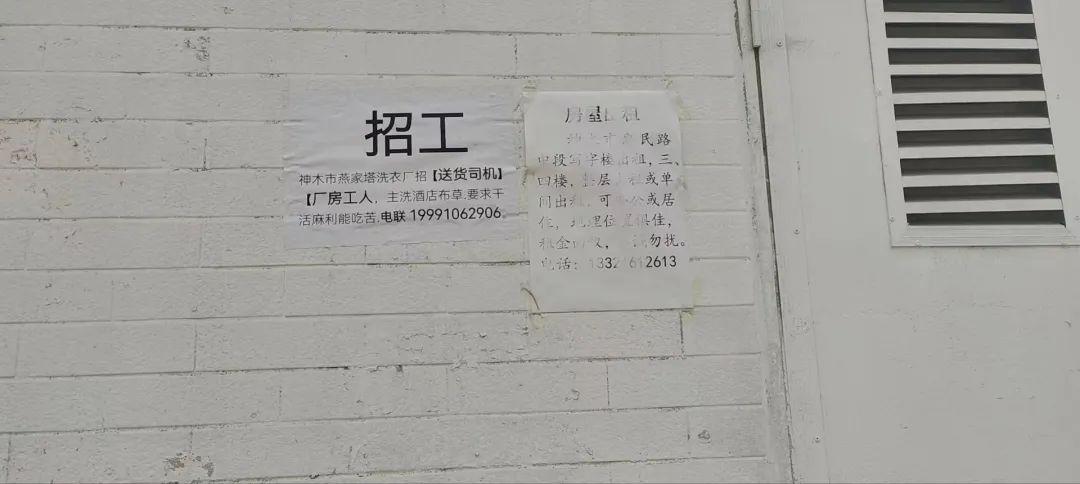 招工
神木市燕家塔洗衣厂招【送货司机】
【厂房工人，主洗酒店布草.要求干
活麻利能吃苦.电联 19991062906.
房屋出租
市 民路
中段写字楼出租，三、
四楼，整层 租或单
间出租，可办公或居
住，地理位置俱佳，
租金面议， 勿扰。
电话：